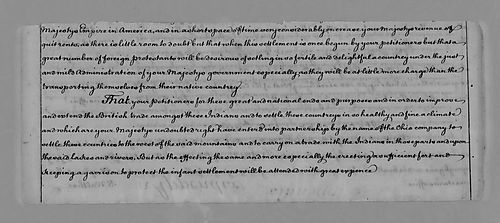 Majestys Empire in America, and in a short space of time very considerably encrease your Majestys revenue of
quit rents, as there is little room to doubt but that when this settlement is once begun by your petitioners but that a
great number of foreign protestants will be desirous of setling in so fertile and delightful a country under the just
and mild Administration of your Majestys government especially as they will be at little more charge than the
transporting themselves from their native country.
That your petitioners for these great and national ends and purposes and in order to improve
and extend the British trade amongst these Indians and to settle these countrys in so healthy and fine a climate
and which are your Majestys undoubted right have enter'd into partnership by the name of the Ohio company to
settle these countries to the west of the said mountains and to carry on a trade with the Indians in those parts and upon
the said lakes and rivers. But as the effecting the same and more especially the erecting a sufficient fort and
keeping a garrison to protect the infant settlement will be attended with great expence